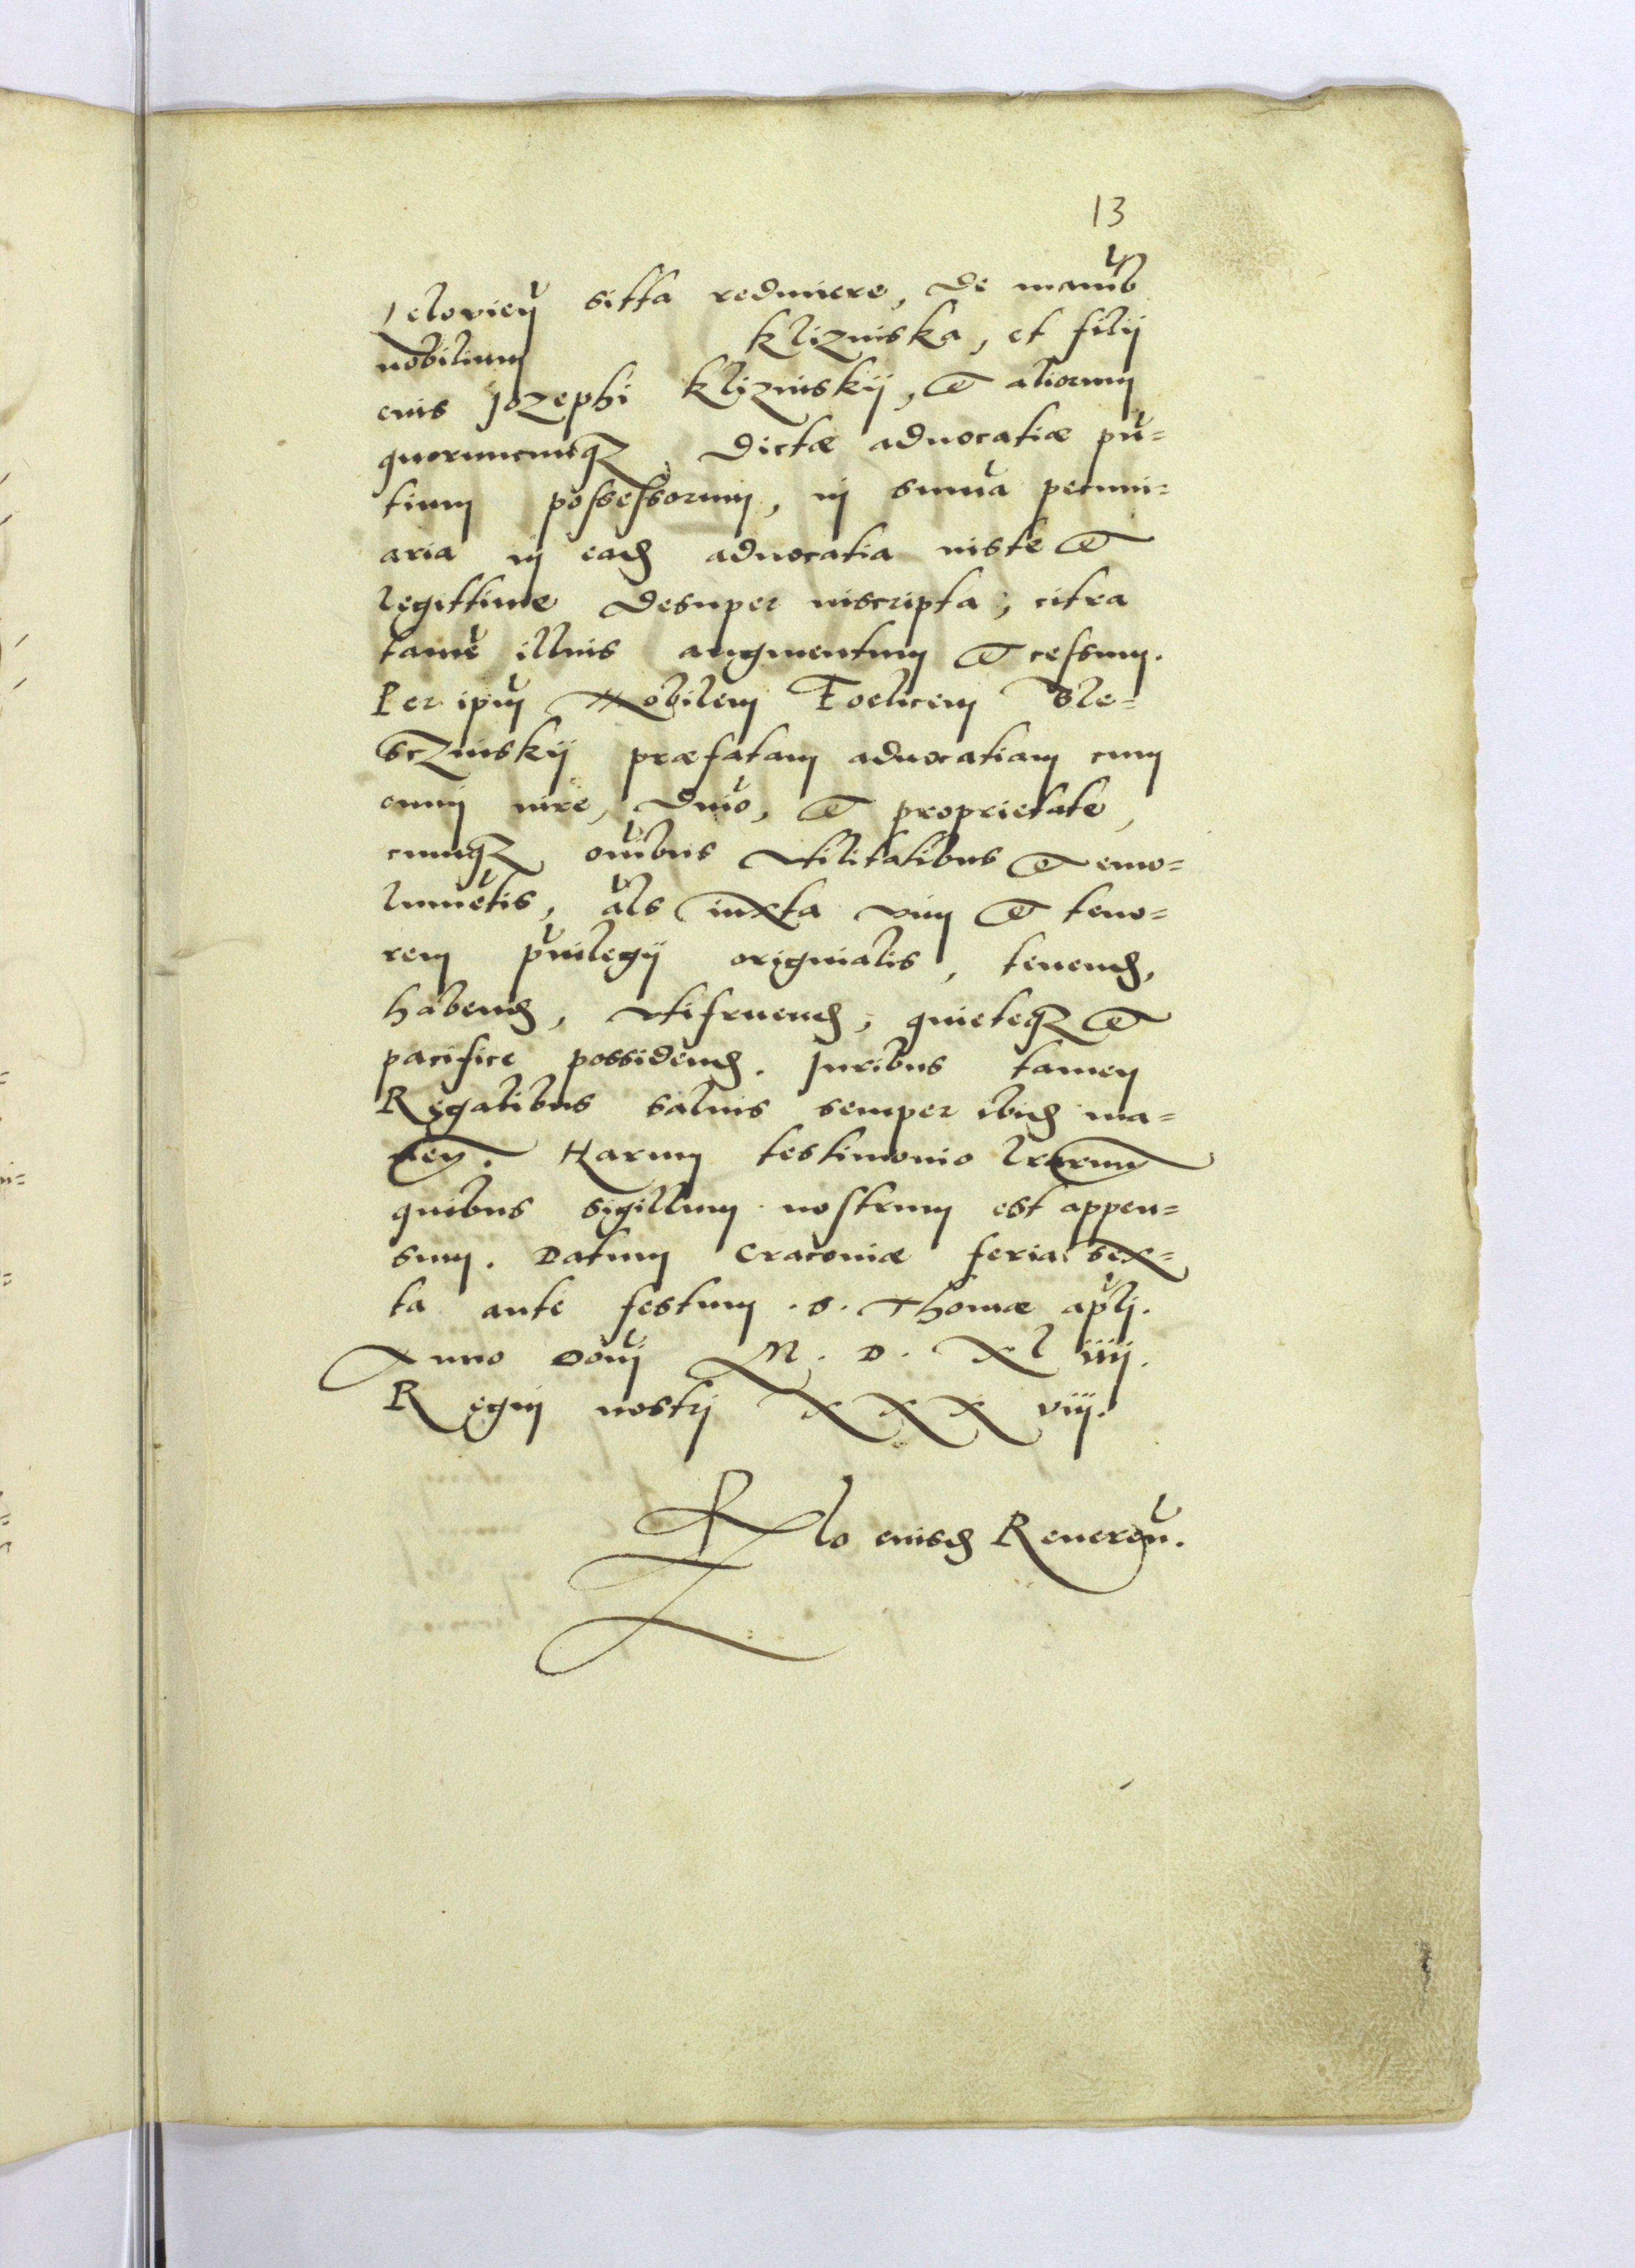 13
Leloviēn sitta redimere, de manib
nobilium Klizinska, et filij
eius Jozephi Klizinskij, et aliorum
quorumcunqz dictæ aduocatiæ pn̄=
tium possessorum, in sum̄a pecuni=
aria in eadē aduocatia iuste et
legittime desuper inscripta, citra
tamē illius augmentum et cessum.
Per ipm̄ Nobilem Foelicem Ble=
sczinskij præfatam aduocatiam cum
omni iure, dnīo, et proprietate,
cumqz oībus vtilitatibus et emo=
lumētis, al̄s iuxta vim et teno=
rem p̄uilegij originalis, tenend,
habend, vtifruend, quieteqz et
pacifice possidend. Juribus tamen
Regalibus saluis semper ibid ma=
nen. Harum testimonio lr̄arum
quibus sigillum nostrum est appen=
sum. Datum Cracouiæ feria sex=
ta ante festum .S. Thomæ ap̄li.
Anno Dom̄j M. D. XL iiij.
Regni nostrj XXX viij.
Rlo eiusd Reueren̄.